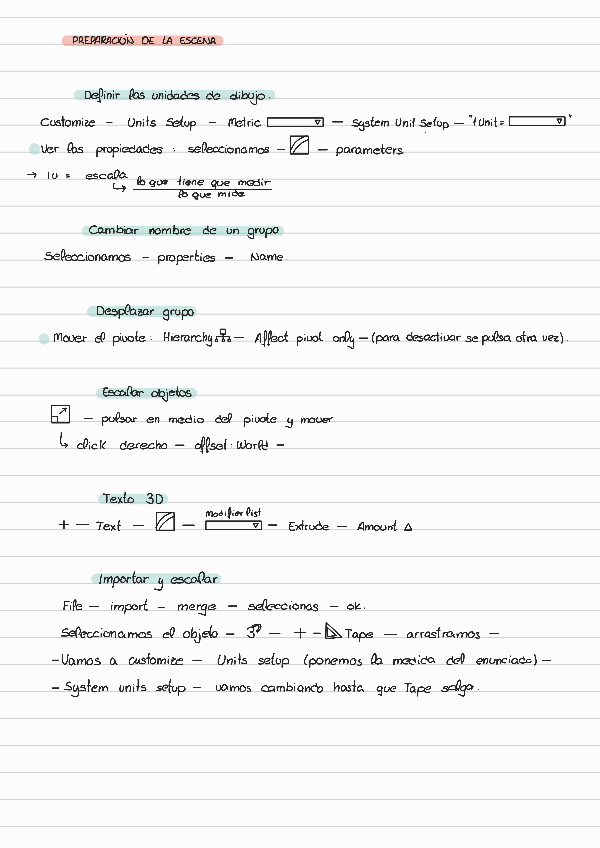 PREPARACIÓN DE LA ESCENA
Definir las unidades de dibujo.
Customize - Units Setup - Metric - System Unit Setup - "1Unit= "
Ver las propiedades : seleccionamos - - parameters
→ 1u = escala
↳ lo que tiene que medir
lo que mide
Cambiar nombre de un grupo
Seleccionamos - properties - Name
Desplazar grupo
Mover el pivote: Hierarchy - Affect pivot only - (para desactivar se pulsa otra vez).
Escalar objetos
- pulsar en medio del pivote y mover
↳ click derecho - offset: World -
Texto 3D
modifier list
+ - Text - - - Extrude - Amount Δ
Importar y escalar
File - import - merge - seleccionas - ok.
Seleccionamos el objeto - 3 - + - Tape - arrastramos -
- Vamos a customize - Units setup (ponemos la medida del enunciado) -
- System units setup - vamos cambiando hasta que Tape salga.